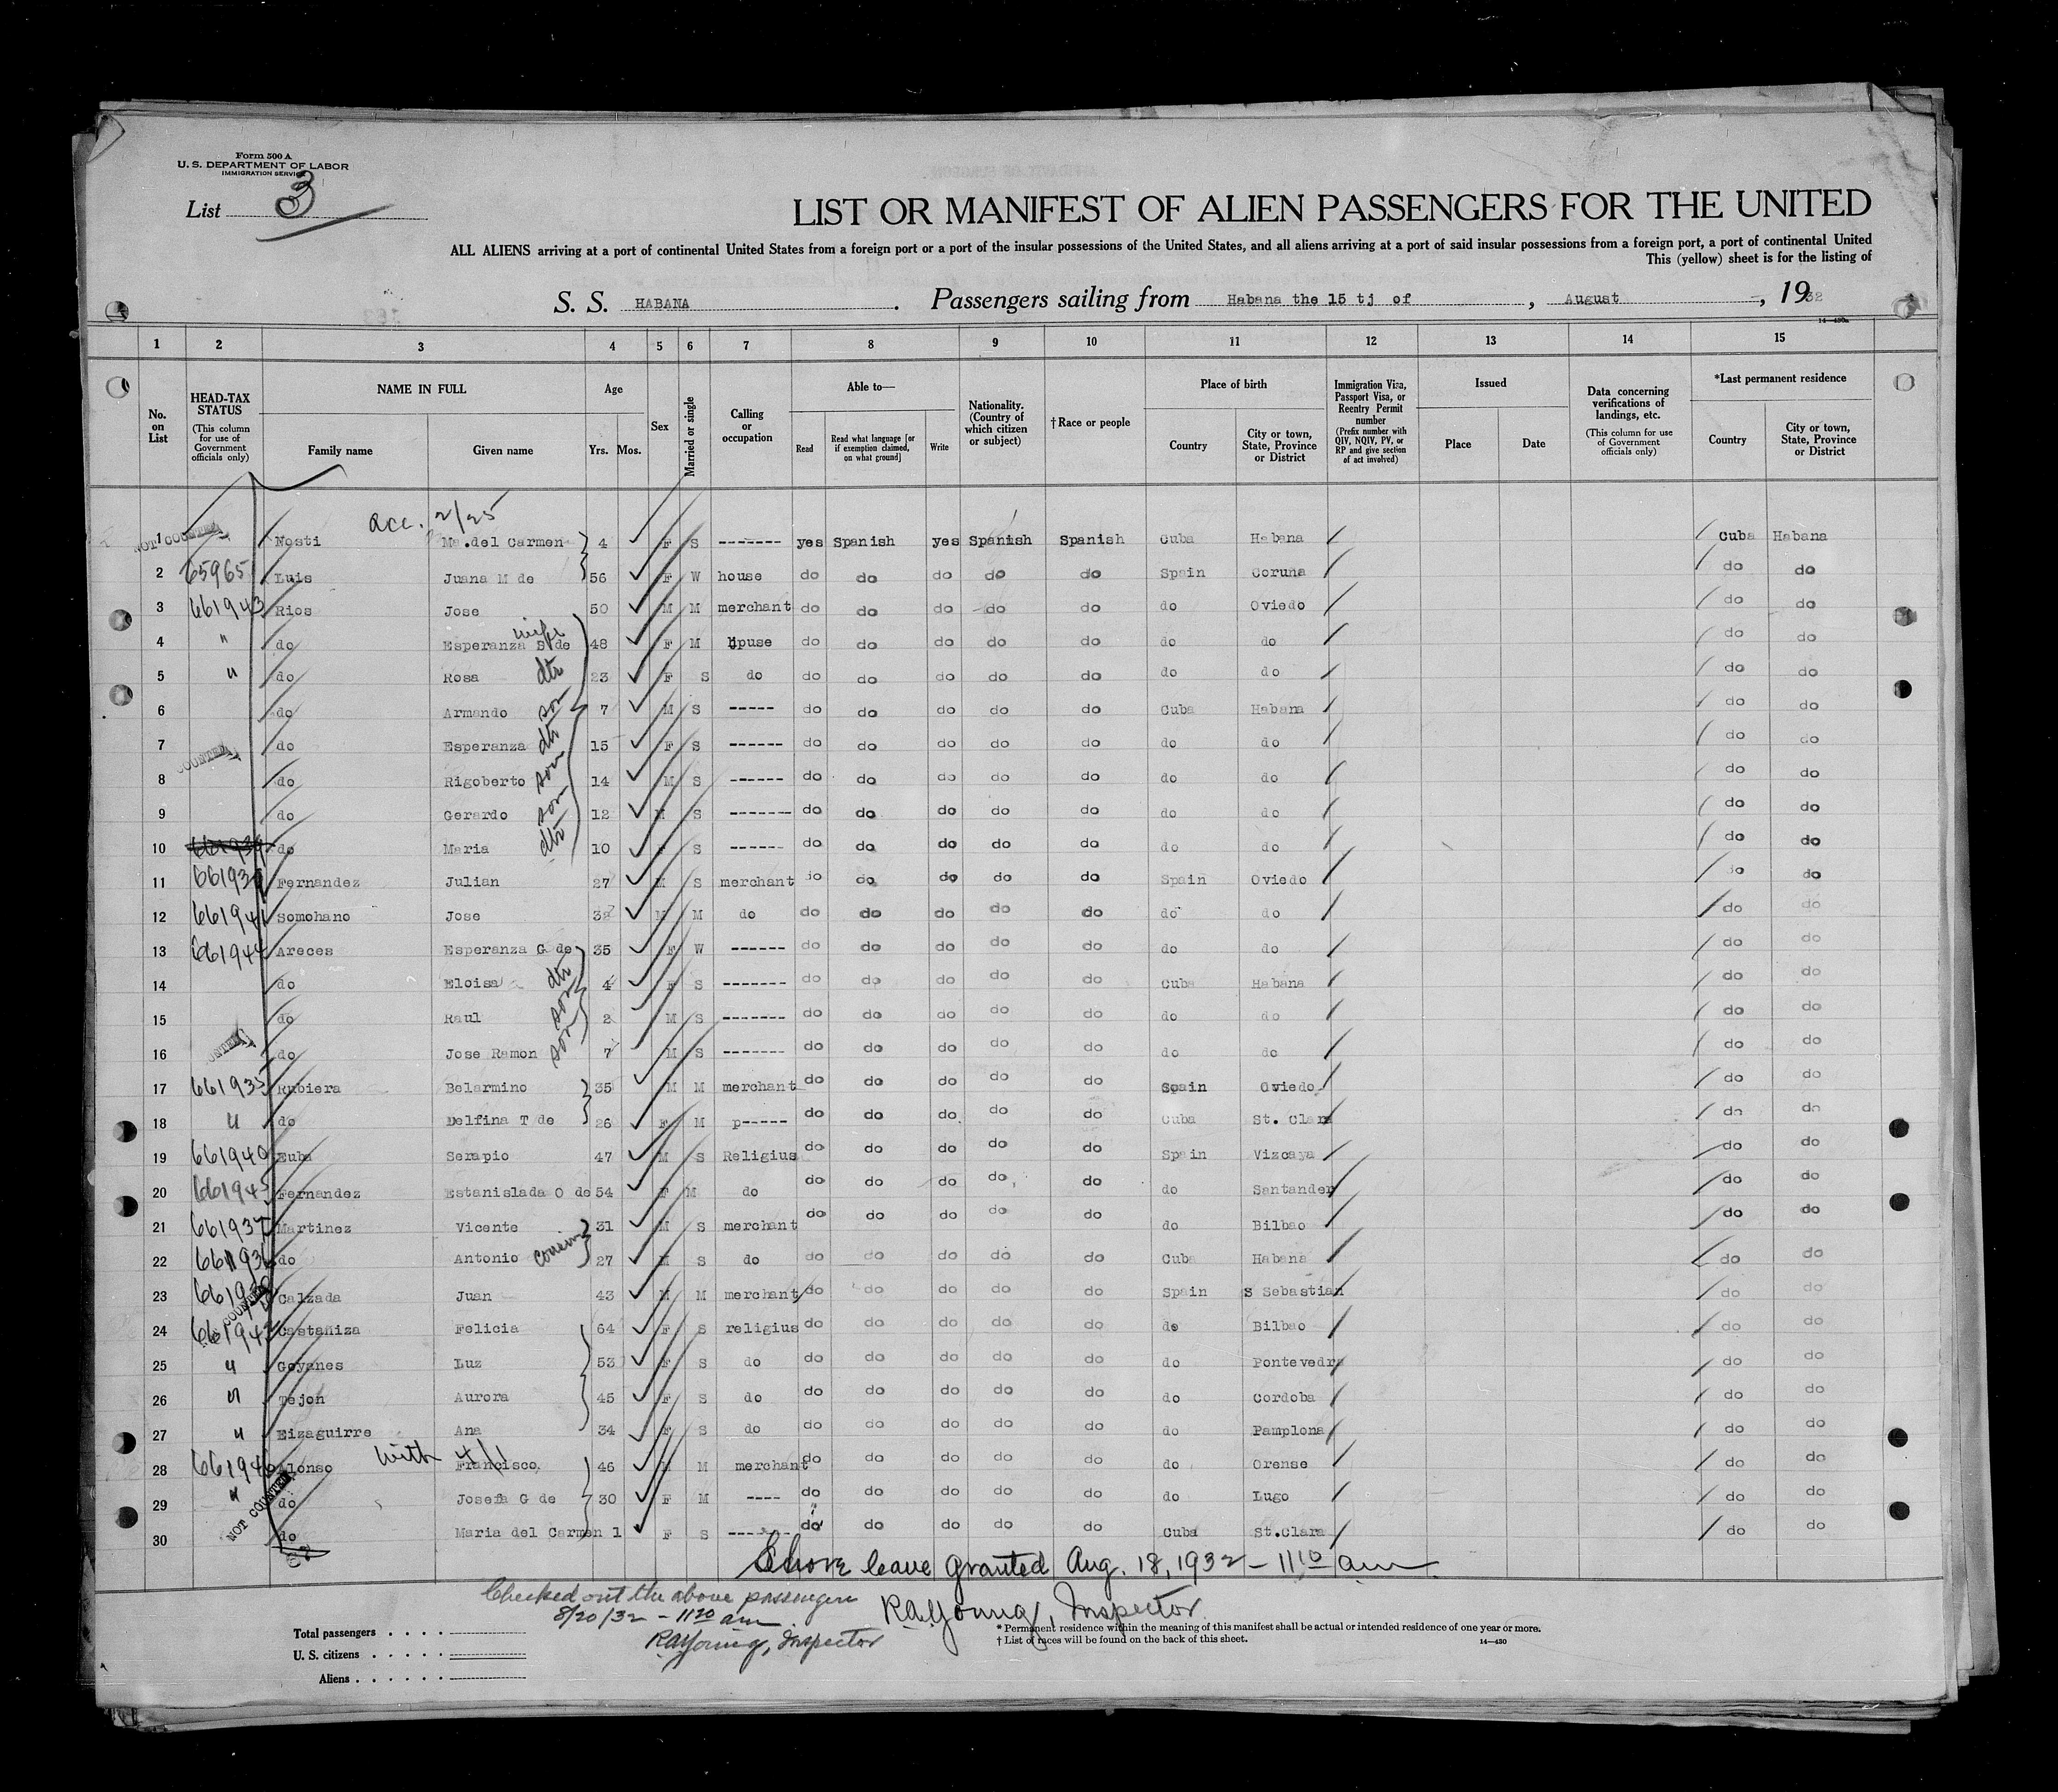 Form 500 A
U. S. DEPARTMENT OF LABOR
IMMIGRATION SERVICE
List 3
LIST OR MANIFEST OF ALIEN PASSENGERS FOR THE UNITED
ALL ALIENS arriving at a port of continental United States from a foreign port or a port of the insular possessions of the United States, and all aliens arriving at a port of said insular possessions from a foreign port, a port of continental United
This (yellow) sheet is for the listing of
S. S. HABANA. Passengers sailing from Habana the 15 tj of, August, 1932
14—430a
1 2 3 4 5 6 7 8 9 10 11 12 13 14 15
No. on List
HEAD-TAX STATUS (This column for use of Government officials only)
NAME IN FULL Family name Given name
Age Yrs. Mos.
Sex
Married or single
Calling or occupation
Able to— Read Read what language [or if exemption claimed, on what ground] Write
Nationality. (Country of which citizen or subject)
†Race or people
Place of birth Country City or town, State, Province or District
Immigration Visa, Passport Visa, or Reentry Permit number (Prefix number with QIV, NQIV, PV, or RP and give section of act involved)
Issued Place Date
Data concerning verifications of landings, etc. (This column for use of Government officials only)
*Last permanent residence Country City or town, State, Province or District
acc. 2/25
1 NOT COUNTED Nosti Ma.del Carmen 4 F S ------- yes Spanish yes Spanish Spanish Cuba Habana Cuba Habana
2 65965 Luis Juana M de 56 F W house do do do do do Spain Coruña do do
3 661943 Rios Jose 50 M M merchant do do do do do do Oviedo do do
4 " do Esperanza S de wife 48 F M house do do do do do do do do do
5 " do Rosa dtr 23 F S do do do do do do do do do do
6 do Armando son 7 M S ----- do do do do do Cuba Habana do do
7 COUNTED do Esperanza dtr 15 F S ------ do do do do do do do do do
8 do Rigoberto son 14 M S ------ do do do do do do do do do
9 do Gerardo son 12 M S ------- do do do do do do do do do
10 do Maria dtr 10 F S ------ do do do do do do do do do
11 Fernandez Julian 27 M S merchant do do do do do Spain Oviedo do do
12 661941 Somohano Jose 32 M M do do do do do do do do do do
13 661944 Areces Esperanza G de 35 F W ------ do do do do do do do do do
14 do Eloisa dtr 4 F S ------- do do do do do Cuba Habana do do
15 do Raul son 2 M S ------- do do do do do do do do do
16 do Jose Ramon son 7 M S ------- do do do do do do do do do
17 661935 Rubiera Belarmino 35 M M merchant do do do do do Spain Oviedo do do
18 " do Delfina T de 26 F M p----- do do do do do Cuba St. Clara do do
19 661940 Euba Serapio 47 M S Religius do do do do do Spain Vizcaya do do
20 661945 Fernandez Estanislada O de 54 F M do do do do do do do Santander do do
21 661937 Martinez Vicente 31 M S merchant do do do do do do Bilbao do do
22 661936 do Antonio cousin 27 M S do do do do do do Cuba Habana do do
23 Calzada Juan 43 M M merchant do do do do do Spain S Sebastian do do
24 661942 Castañiza Felicia 64 F S religius do do do do do do Bilbao do do
25 " Goyanes Luz 53 F S do do do do do do do Pontevedra do do
26 " Tejon Aurora 45 F S do do do do do do do Cordoba do do
27 " Eizaguirre Ana 34 F S do do do do do do do Pamplona do do
with 4/1
28 661946 Alonso Francisco 46 M M merchant do do do do do do Orense do do
29 " do Josefa G de 30 F M ---- do do do do do do Lugo do do
30 NOT COUNTED do Maria del Carmen 1 F S ------ do do do do do Cuba St.Clara do do
Shore leave granted Aug. 18, 1932 - 11 10 am
R.A. Young, Inspector
Checked out the above passengers
8/20/32 - 11 20 am
R.A. Young, Inspector
Total passengers
U. S. citizens
Aliens
* Permanent residence within the meaning of this manifest shall be actual or intended residence of one year or more.
† List of races will be found on the back of this sheet.
14—430